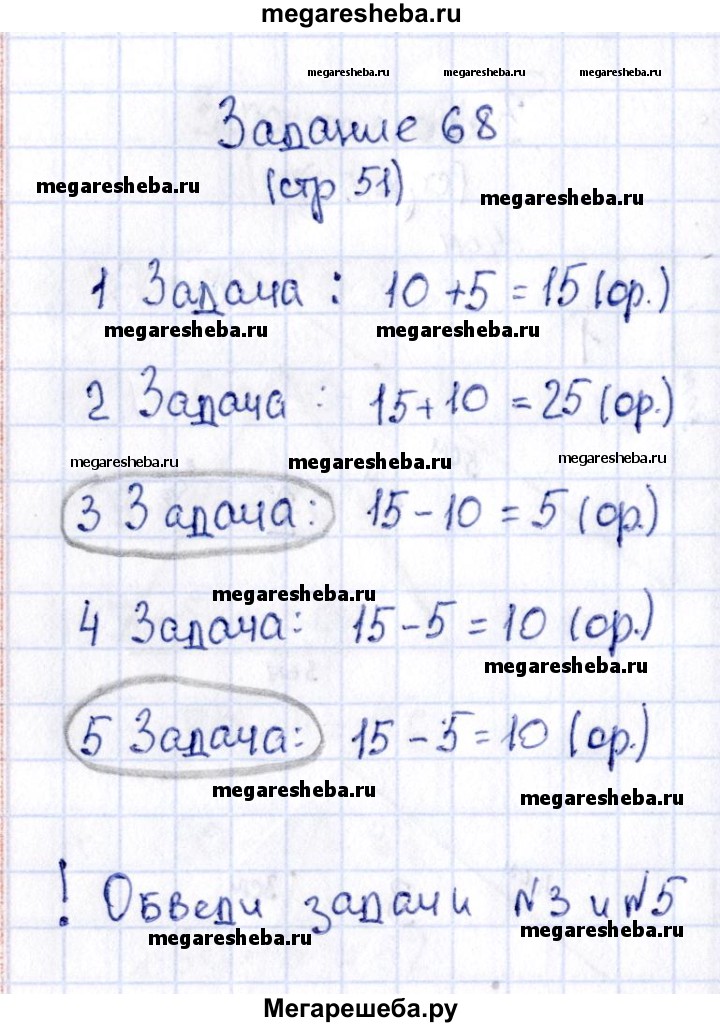 megaresheba.ru
megaresheba.ru megaresheba.ru megaresheba.ru
Задание 68
megaresheba.ru (стр 51) megaresheba.ru
1 Задача : 10 + 5 = 15 (ор.)
megaresheba.ru megaresheba.ru
2 Задача : 15 + 10 = 25 (ор.)
megaresheba.ru megaresheba.ru megaresheba.ru
3 Задача: 15 - 10 = 5 (ор.)
megaresheba.ru
4 Задача: 15 - 5 = 10 (ор.)
megaresheba.ru
5 Задача: 15 - 5 = 10 (ор.)
megaresheba.ru megaresheba.ru
! Обведи задачи №3 и №5
megaresheba.ru megaresheba.ru
Мегарешеба.ру